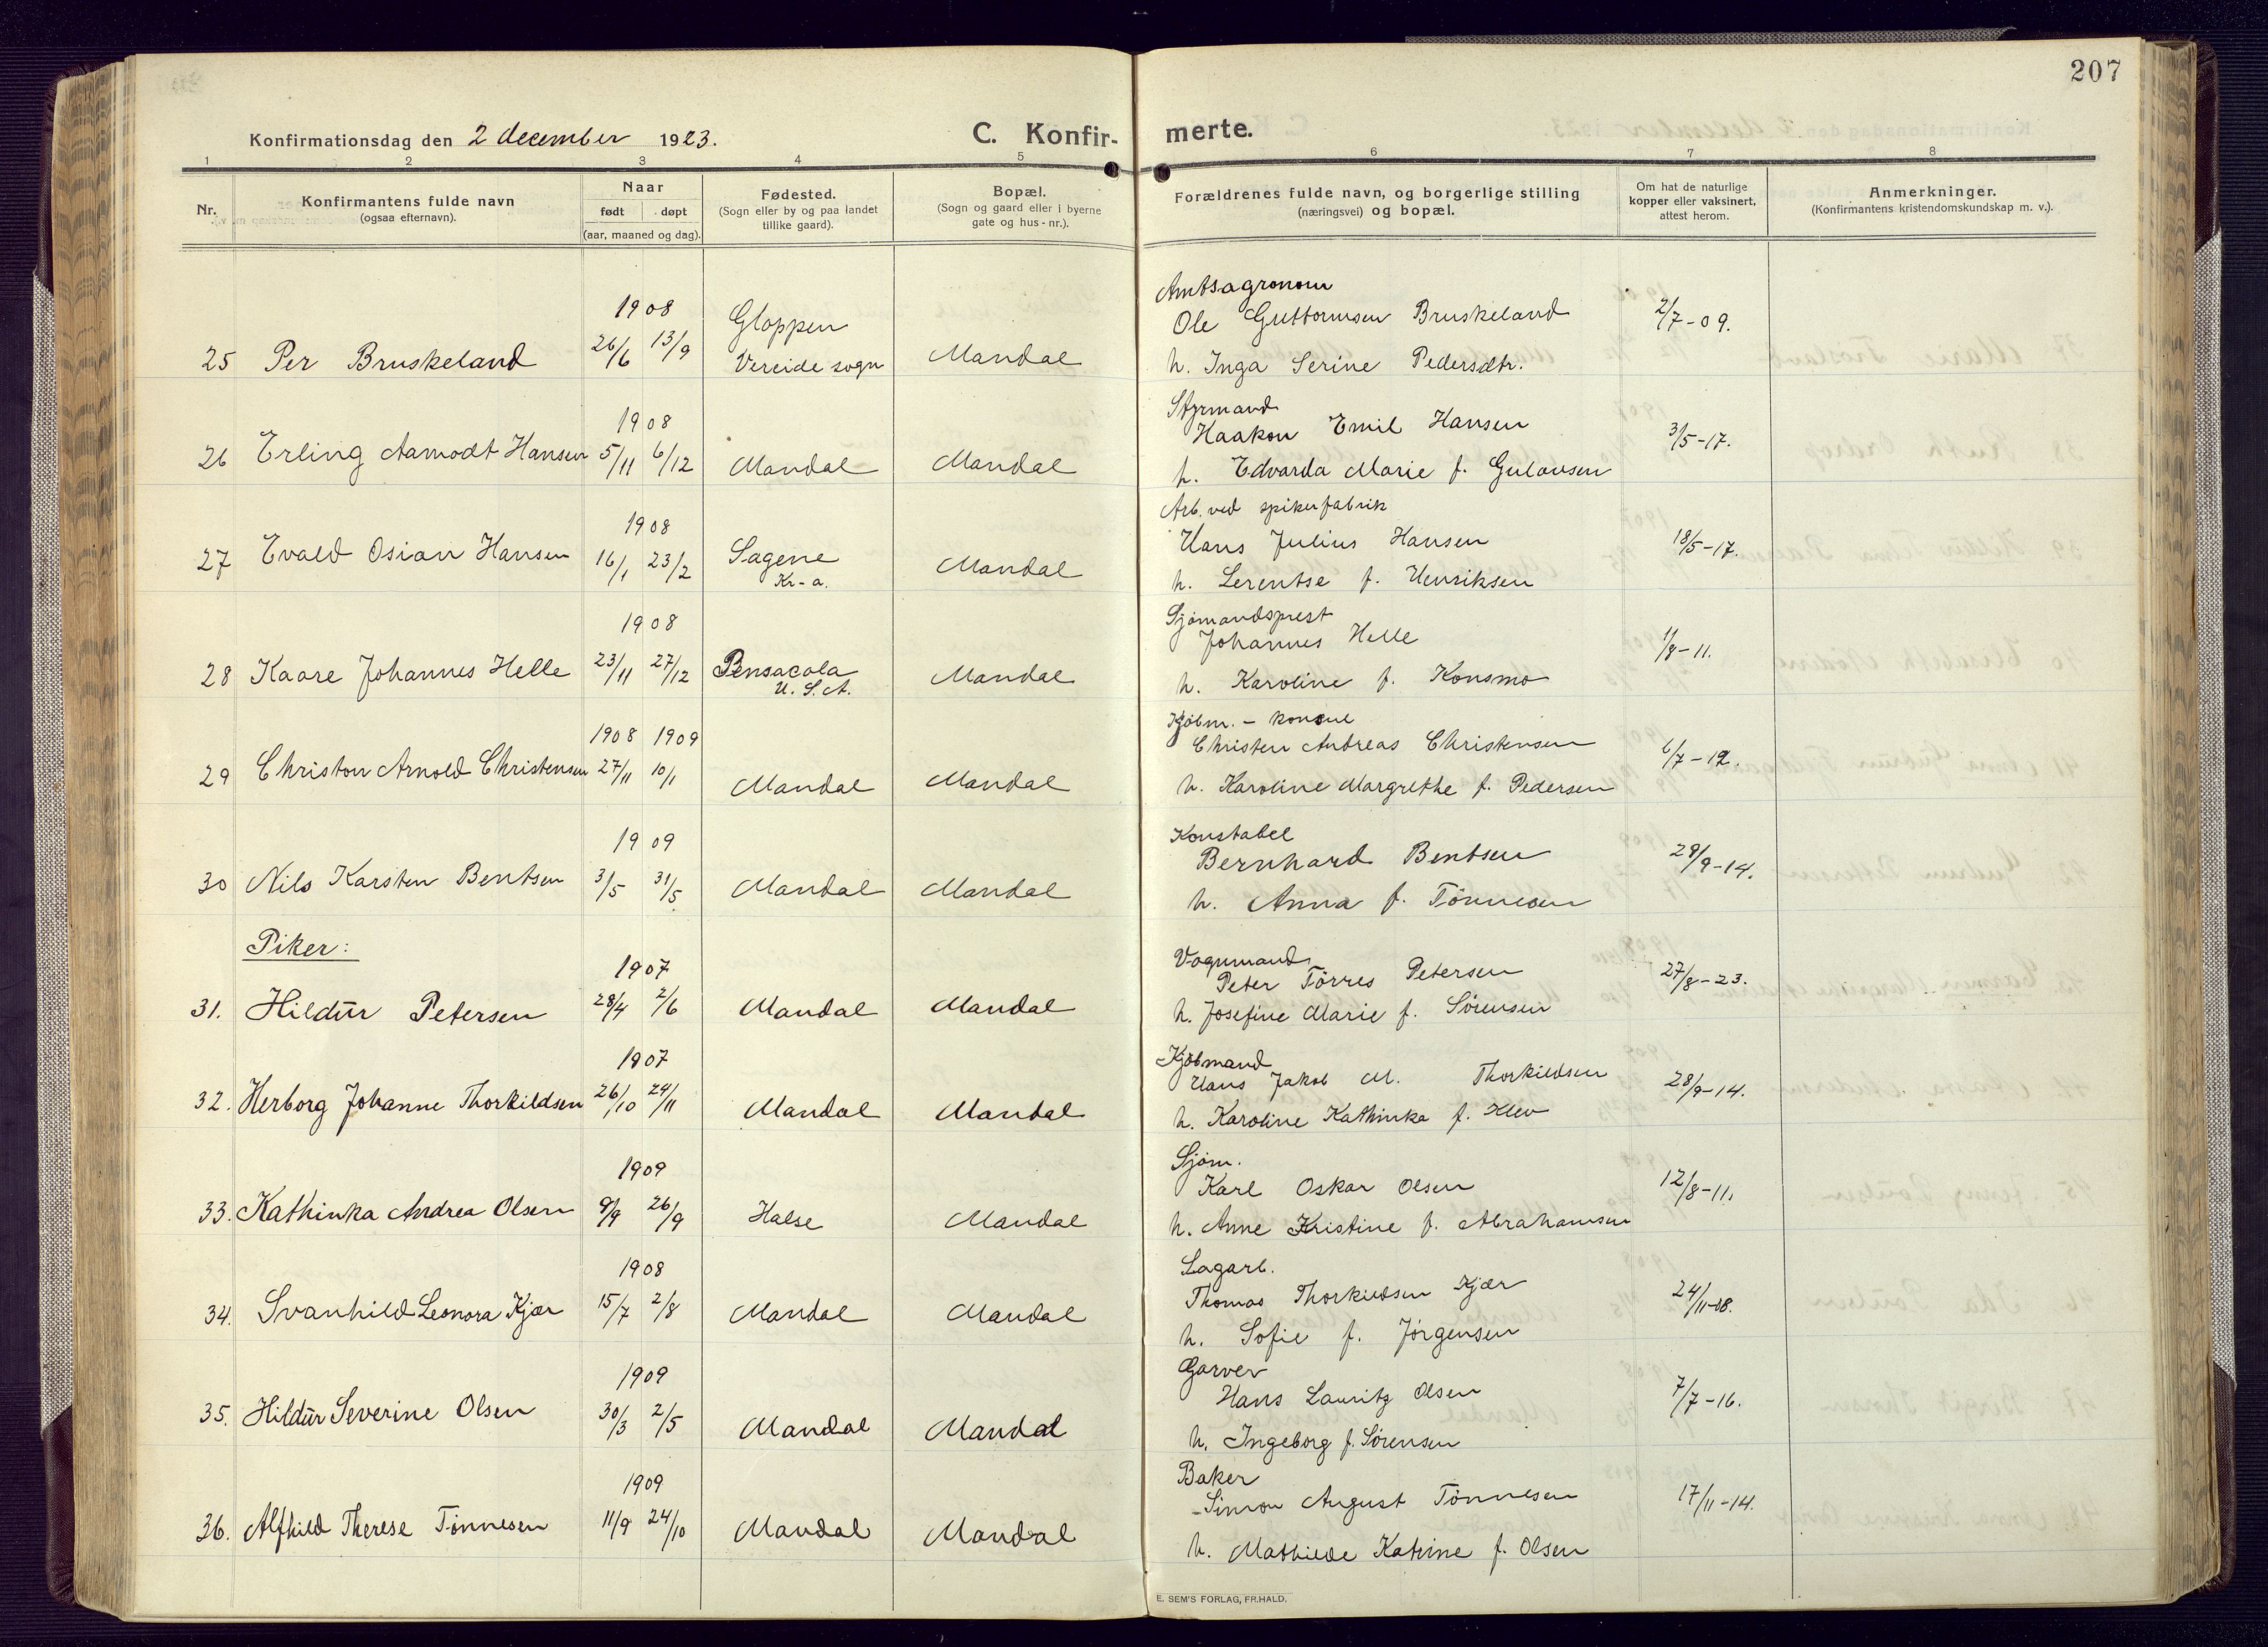 207
Konfirmationsdag den 2 december 1923.
C. Konfir-
merte.
1 2 3 4 5 6 7 8
Nr.
Konfirmantens fulde navn
(ogsaa efternavn).
Naar
født døpt
(aar, maaned og dag).
Fødested.
(Sogn eller by og paa landet
tillike gaard).
Bopæl.
(Sogn og gaard eller i byerne
gate og hus-nr.).
Forældrenes fulde navn, og borgerlige stilling
(næringsvei) og bopæl.
Om hat de naturlige
kopper eller vaksinert,
attest herom.
Anmerkninger.
(Konfirmantens kristendomskundskap m. v.).
Amtsagronom
1908 Gloppen Ole Guttormsen Bruskeland 2/7-09.
25 Per Bruskeland 26/6 13/9 Vereide sogn Mandal h. Inga Serine Pedersdtr.
Styrmand
1908 Haakon Emil Hansen 3/5-17.
26 Erling Aamodt Hansen 5/11 6/12 Mandal Mandal h. Edvarda Marie f. Gulovsen
Arb. ved spikerfabrik
1908 Hans Julius Hansen 18/5-17.
27 Evald Osian Hansen 16/1 23/2 Sagene Mandal
Kr-a. h. Lerentse f. Henriksen
Sjømandsprest
1908 Johannes Helle 1/8-11.
28 Kaare Johannes Helle 23/11 27/12 Pensacola Mandal h. Karoline f. Konsmo
U. S. A.
Kjøbm. - konsul
1908 1909 Christen Andreas Christensen 6/7-12.
29 Christon Arnold Christensen 27/11 10/1 Mandal Mandal h. Karoline Margrethe f. Pedersen
Konstabel
1909 Bernhard Bentsen 29/9-14.
30 Nils Karsten Bentsen 3/5 31/5 Mandal Mandal h. Anna f. Tönnesen
Piker:
Vognmand
1907 Peter Törres Petersen 27/8-23.
31. Hildur Petersen 28/4 2/6 Mandal Mandal h. Josefine Marie f. Sörensen
Kjøbmand
1907 Hans Jakob M. Thorkildsen 28/9-14.
32. Herborg Johanne Thorkildsen 26/10 24/11 Mandal Mandal h. Karoline Kathinka f. Klev
Sjøm.
1909 Karl Oskar Olsen 12/8-11.
33. Kathinka Andrea Olsen 9/9 26/9 Halse Mandal h. Anne Kristine f. Abrahamsen
Sagarb.
1908 Thomas Thorkildsen Kjær 24/11-08.
34. Svanhild Leonora Kjær 15/7 2/8 Mandal Mandal h. Sofie f. Jørgensen
Garver
1909 Hans Lauritz Olsen 7/7-16.
35. Hildur Severine Olsen 30/3 2/5 Mandal Mandal h. Ingeborg f. Sørensen
Baker
1909 Simon August Tönnesen 17/11-14.
36. Alfhild Therese Tönnesen 11/9 24/10 Mandal Mandal h. Mathilde Katrine f. Olsen
E. SEM'S FORLAG, FR.HALD.